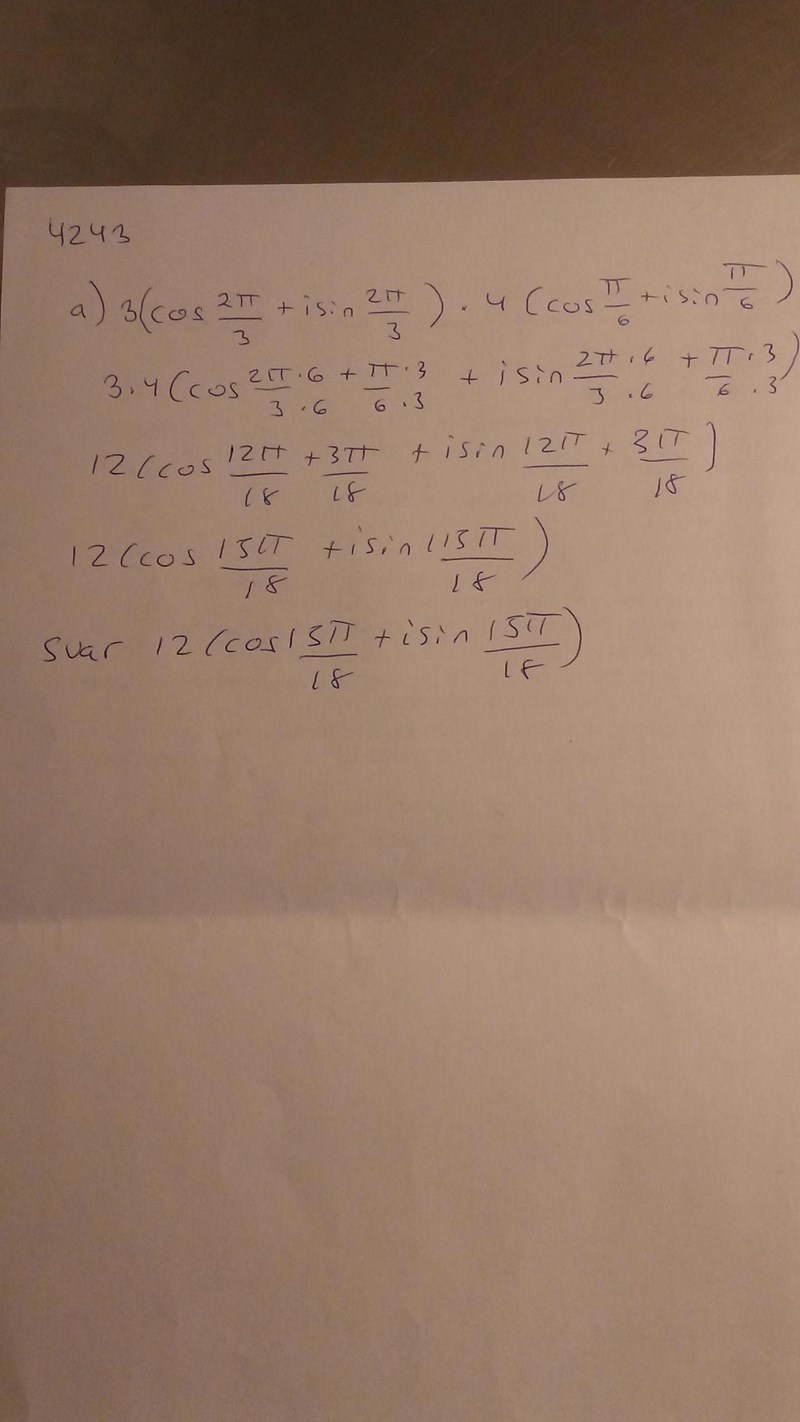 4243
a) 3(cos 2π/3 + i sin 2π/3) · 4 (cos π/6 + i sin π/6)
3·4 (cos 2π·6/3·6 + π·3/6·3 + i sin 2π·6/3·6 + π·3/6·3)
12 (cos 12π/18 + 3π/18 + i sin 12π/18 + 3π/18)
12 (cos 15π/18 + i sin 115π/18)
Svar 12 (cos 15π/18 + i sin 15π/18)